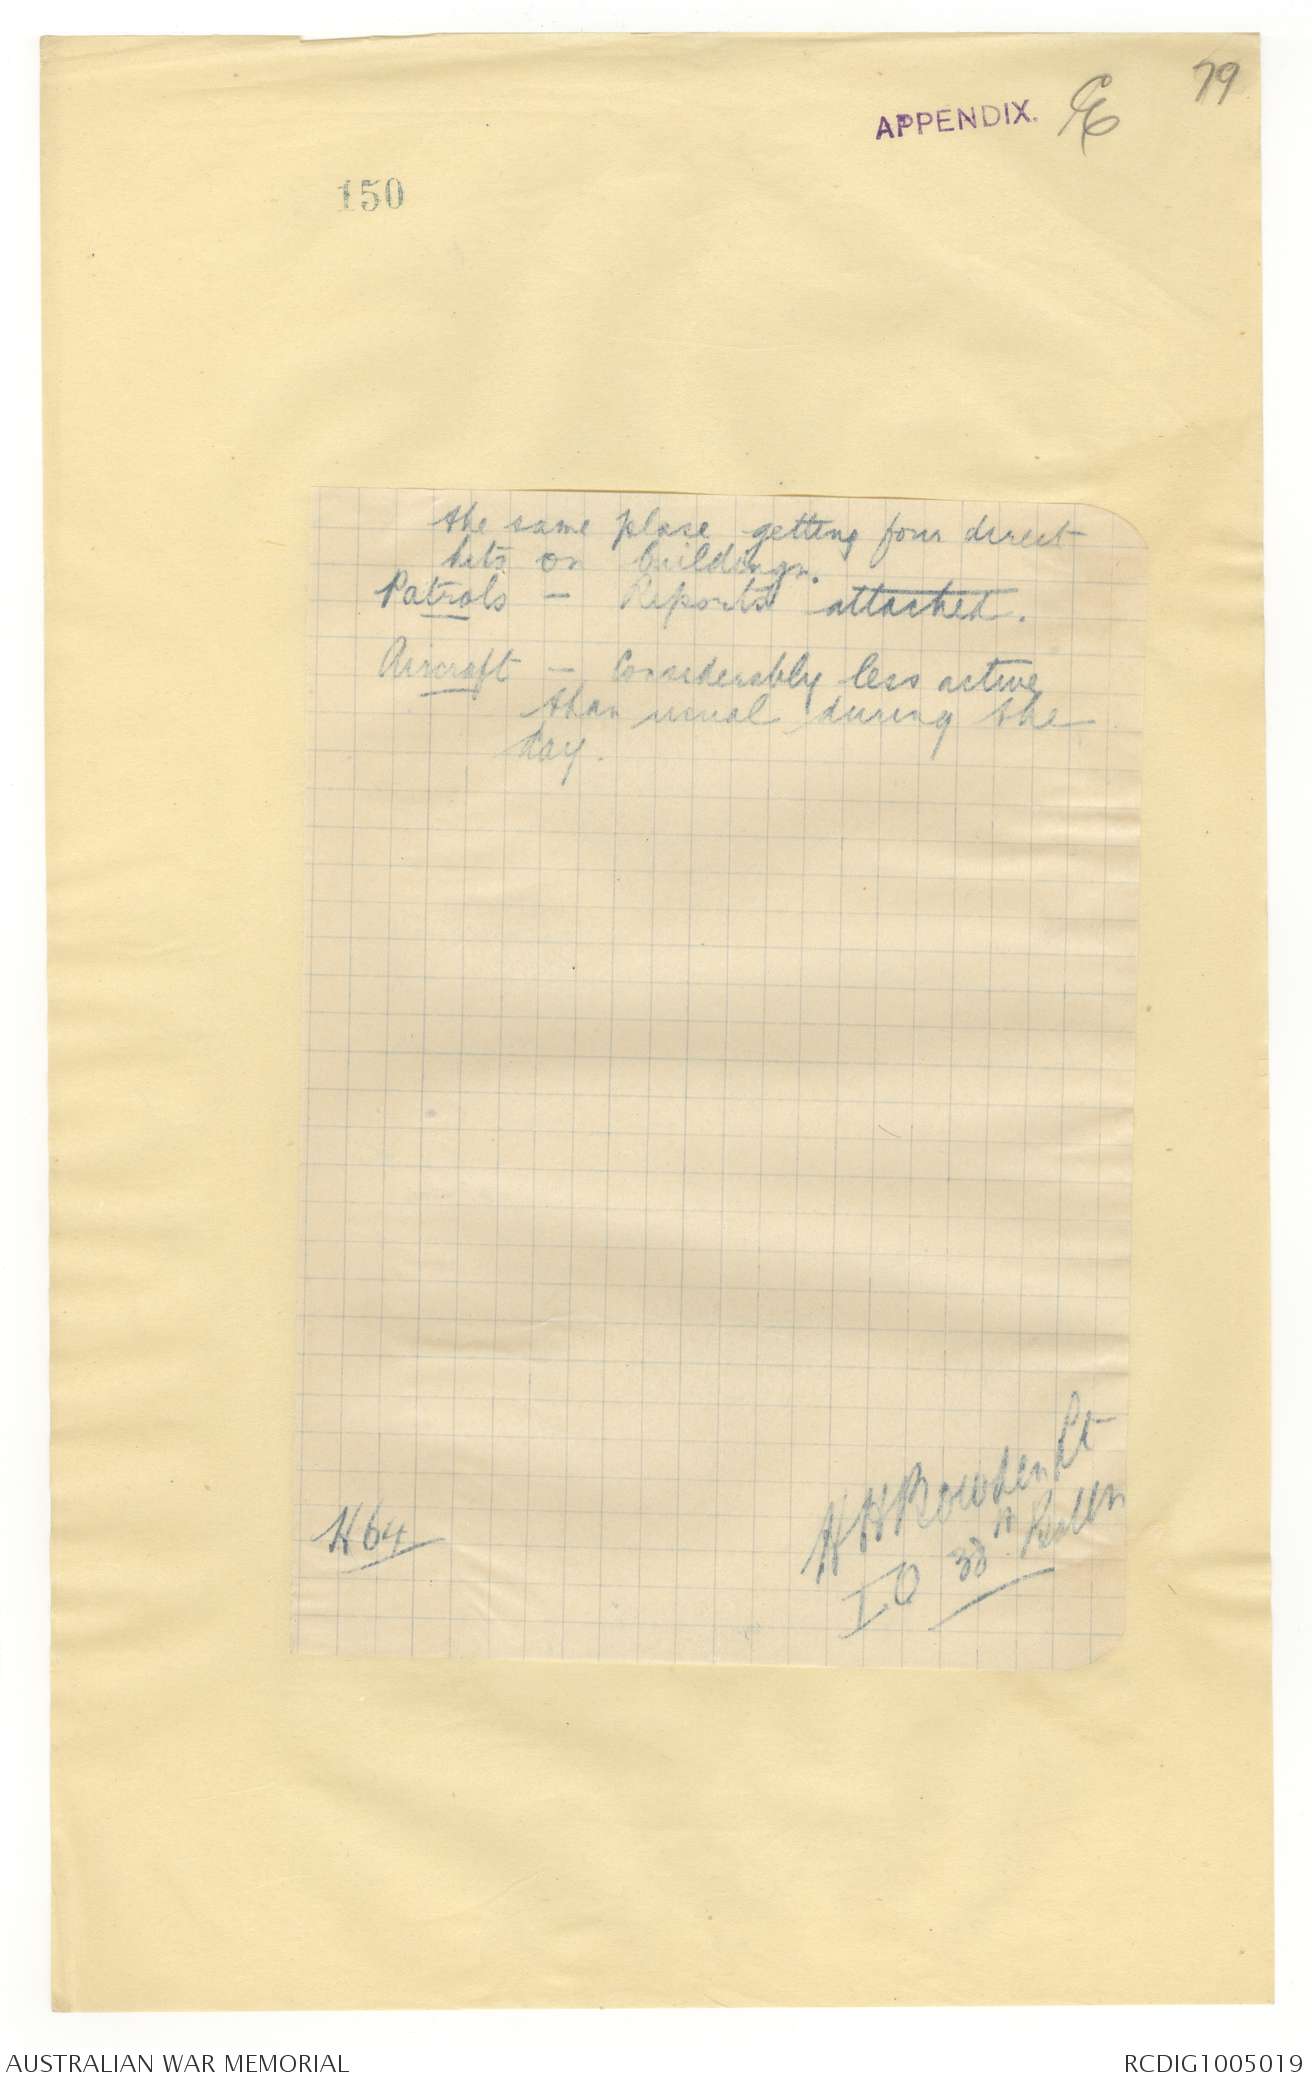 79
APPENDIX. E
150
the same place getting four direct
hits on buildings.
Patrols - Reports attached.
Aircraft - Considerably less active
than usual during the
day.
H H Bowden Lt
IO 38th
H64
AUSTRALIAN WAR MEMORIAL
RCDIG1005019